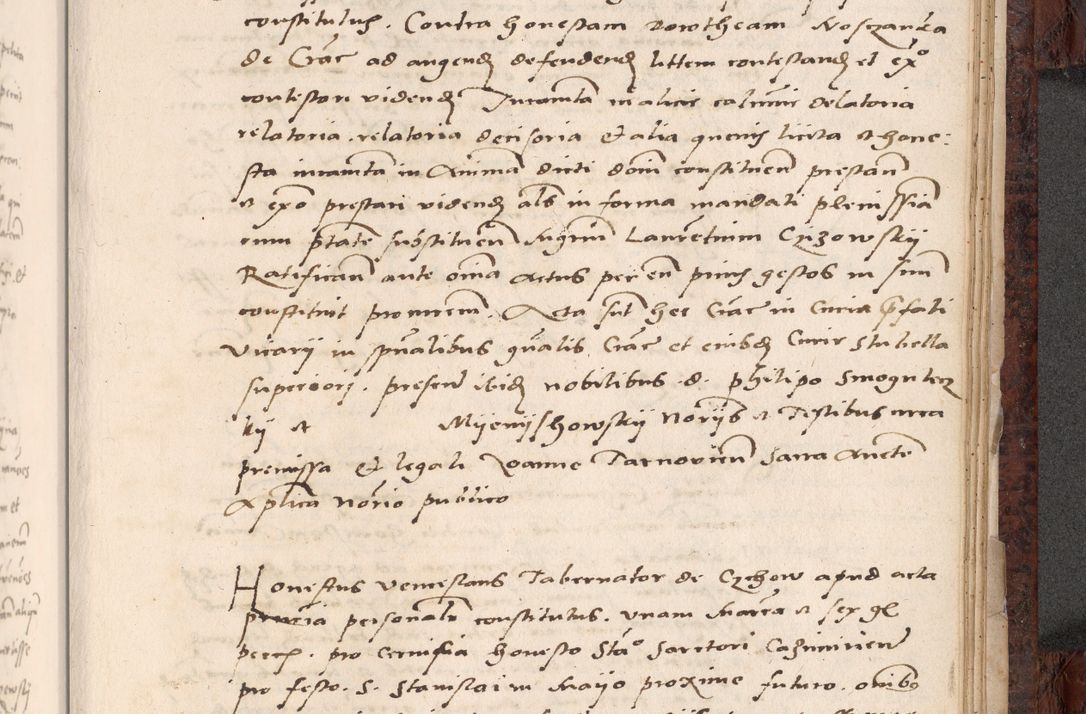 constitutus. Contra honestam Dorotheam Nosczanka
de Crac ad augend defendend littem contestand et exº
contestari videnđ Juramta malicie calumie delatoria
relatoria . relatoria decisoria & alia quevis licita et hone:
sta iuramta in Animam dicti domi constituen prestan
et exº prestari videnđ als in forma mandati plenissia
cum ptate substituen Magrum Laurentium Czizowskij
Ratifican ante omia Actus per eu prius gestos in simul
constituit procurem. Acta sut hec Crac in Curia pfati
Vicarij in spualibus gnalis Crac et eiusđ Curie stubella
superiori. presen ibiđ nobilibus .d. philipo Smogulecz
kij et Mijenijshowskij Norijs et Testibus circa
premissa & legali Joanne Tarnovien Sacra Aucte
Aplica Norio publico
Honestus Venceslaus Tabernator de Czchow apud acta
pntia personalr constitutus. Unam Marca et sex gl
pecc. pro cervisia honesto Stao Sartori Cazimirien
pro festo. S. Stanislai in Maijo proxime futuro. omibus